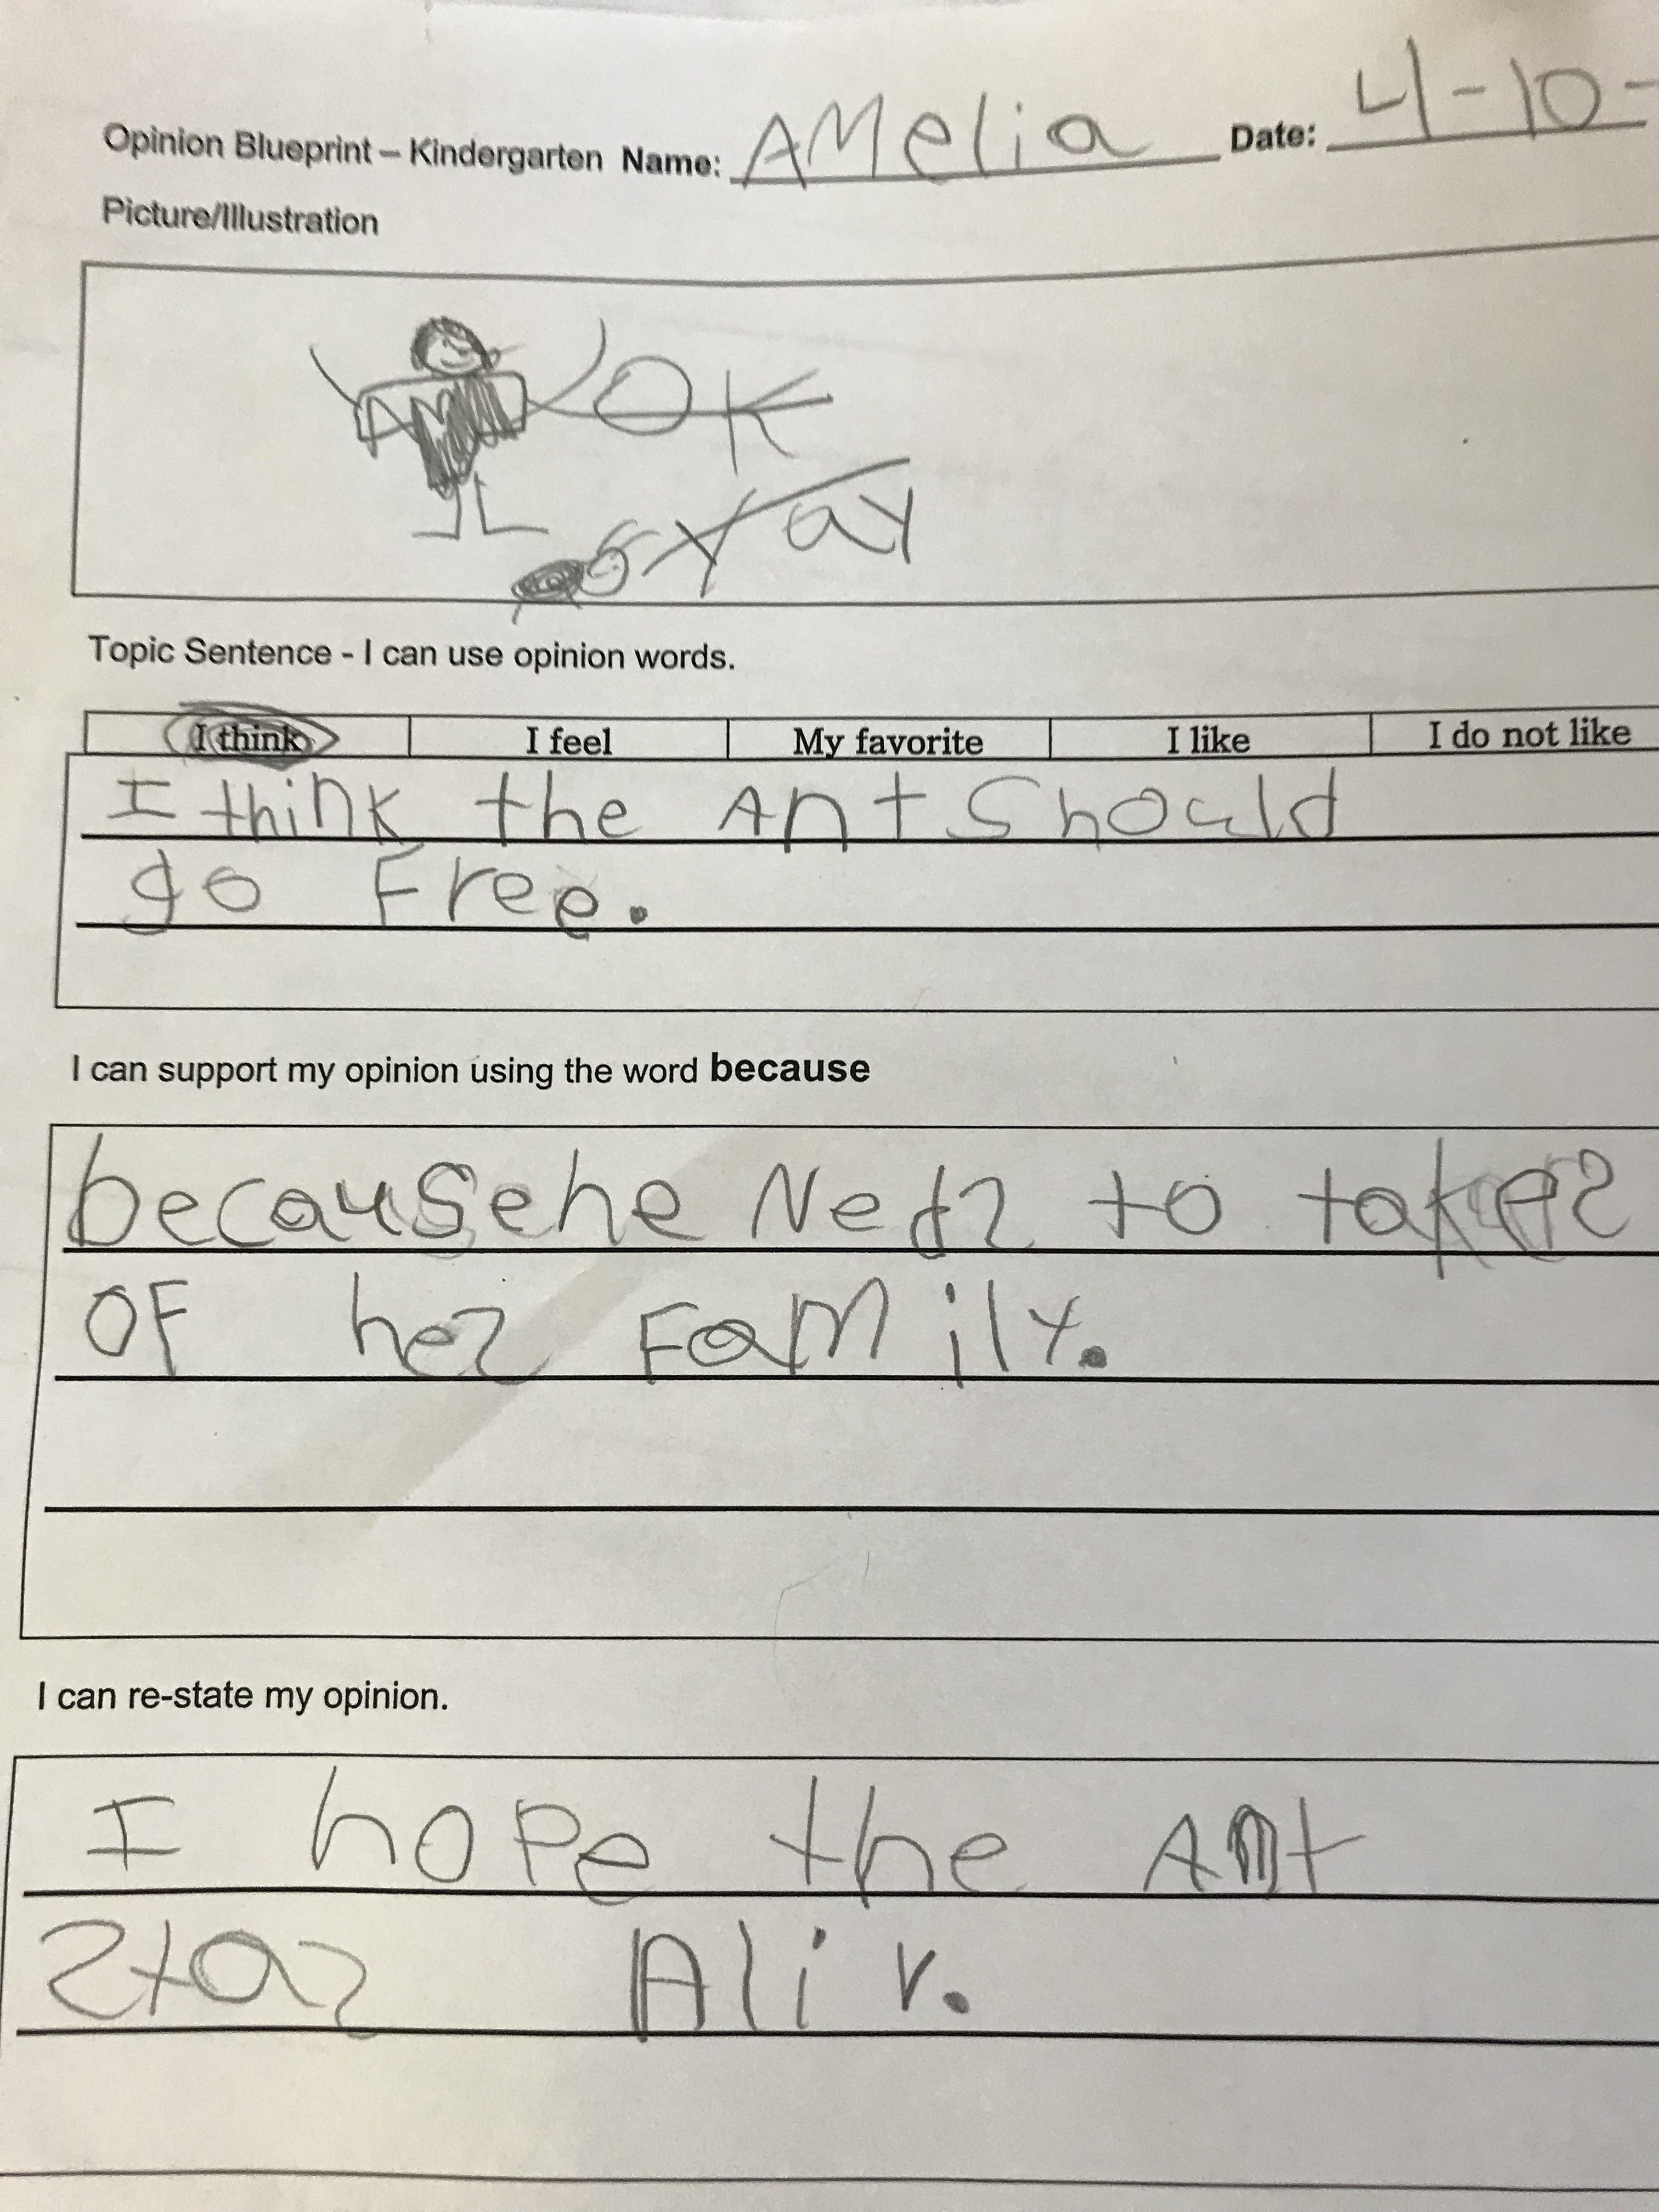 Opinion Blueprint – Kindergarten Name: AMelia Date: 4-10-
Picture/Illustration
AM
OK
Yay
Topic Sentence - I can use opinion words.
I think I feel My favorite I like I do not like
I think the Ant Should
go Free.
I can support my opinion using the word because
because he Neds to take
OF hes FaMily.
I can re-state my opinion.
I hoPe the Ant
stas Aliv.